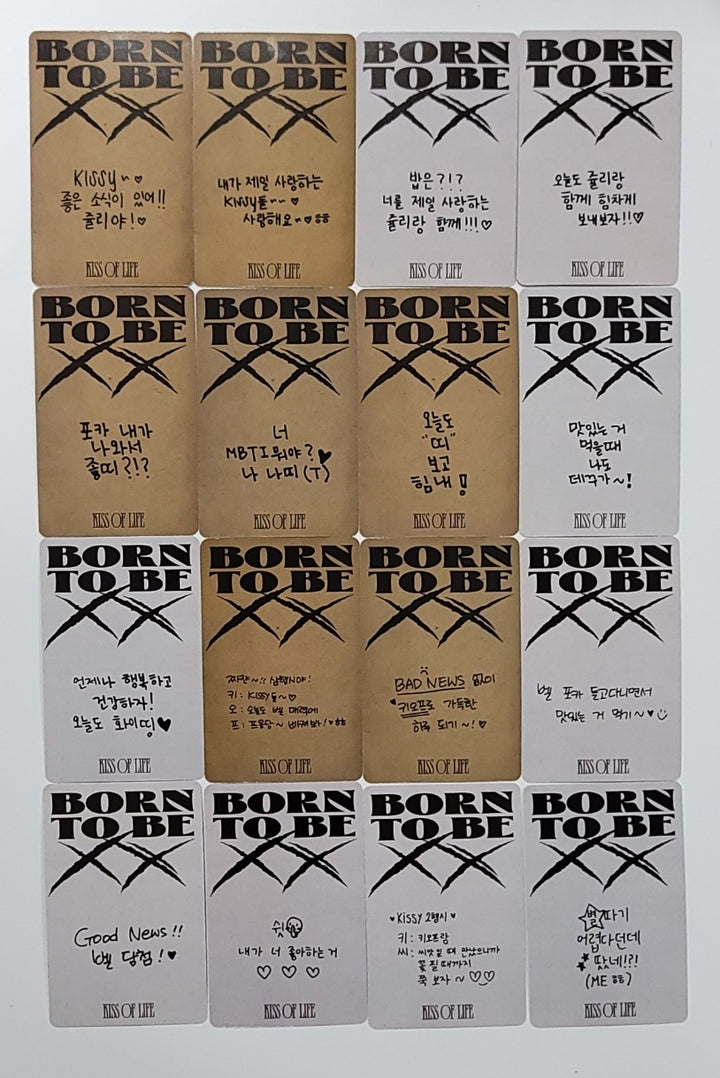 BORN
TO BE
XX
KISSY ~ ♡
좋은 소식이 있어!!
쥴리야! ♡
KISS OF LIFE
BORN
TO BE
XX
내가 제일 사랑하는
KISSY들~~ ♡
사랑해요~♡ㅎㅎ
KISS OF LIFE
BORN
TO BE
XX
밥은?!?
너를 제일 사랑하는
쥴리랑 함께!!!♡
KISS OF LIFE
BORN
TO BE
XX
오늘도 쥴리랑
함께 힘차게
보내보자!!♡
KISS OF LIFE
BORN
TO BE
XX
포카 내가
나와서
좋띠?!?
KISS OF LIFE
BORN
TO BE
XX
너
MBTI 뭐야?
나 나띠(T)
KISS OF LIFE
BORN
TO BE
XX
오늘도
"띠"
보고
힘내!
KISS OF LIFE
BORN
TO BE
XX
맛있는 거
먹을때
나도
데꾸가~!
KISS OF LIFE
BORN
TO BE
XX
언제나 행복하고
건강하자!
오늘도 화이띵♥
KISS OF LIFE
BORN
TO BE
XX
짜쟌~!! 삼행시야!
키: KISSY들~♡
오: 오늘도 벨 매력에
프: 프옹당~ 빠져봐라!♥ㅎㅎ
KISS OF LIFE
BORN
TO BE
XX
BAD NEWS 없이
키오프로 가득한
하루 되기~!♡
KISS OF LIFE
BORN
TO BE
XX
벨 포카 들고다니면서
맛있는 거 먹기~♥
KISS OF LIFE
BORN
TO BE
XX
Good News!!
벨 당첨!♥
KISS OF LIFE
BORN
TO BE
XX
쉿
내가 너 좋아하는 거
♡ ♡ ♡
KISS OF LIFE
BORN
TO BE
XX
♥KISSY 2행시♥
키: 키오프랑
씨: 씨앗일 때 만났으니까
꽃 필 때까지
쭉 보자~♡♡
KISS OF LIFE
BORN
TO BE
XX
별따기
어렵다던데
땄네!?!
(ME ㅎㅎ)
KISS OF LIFE